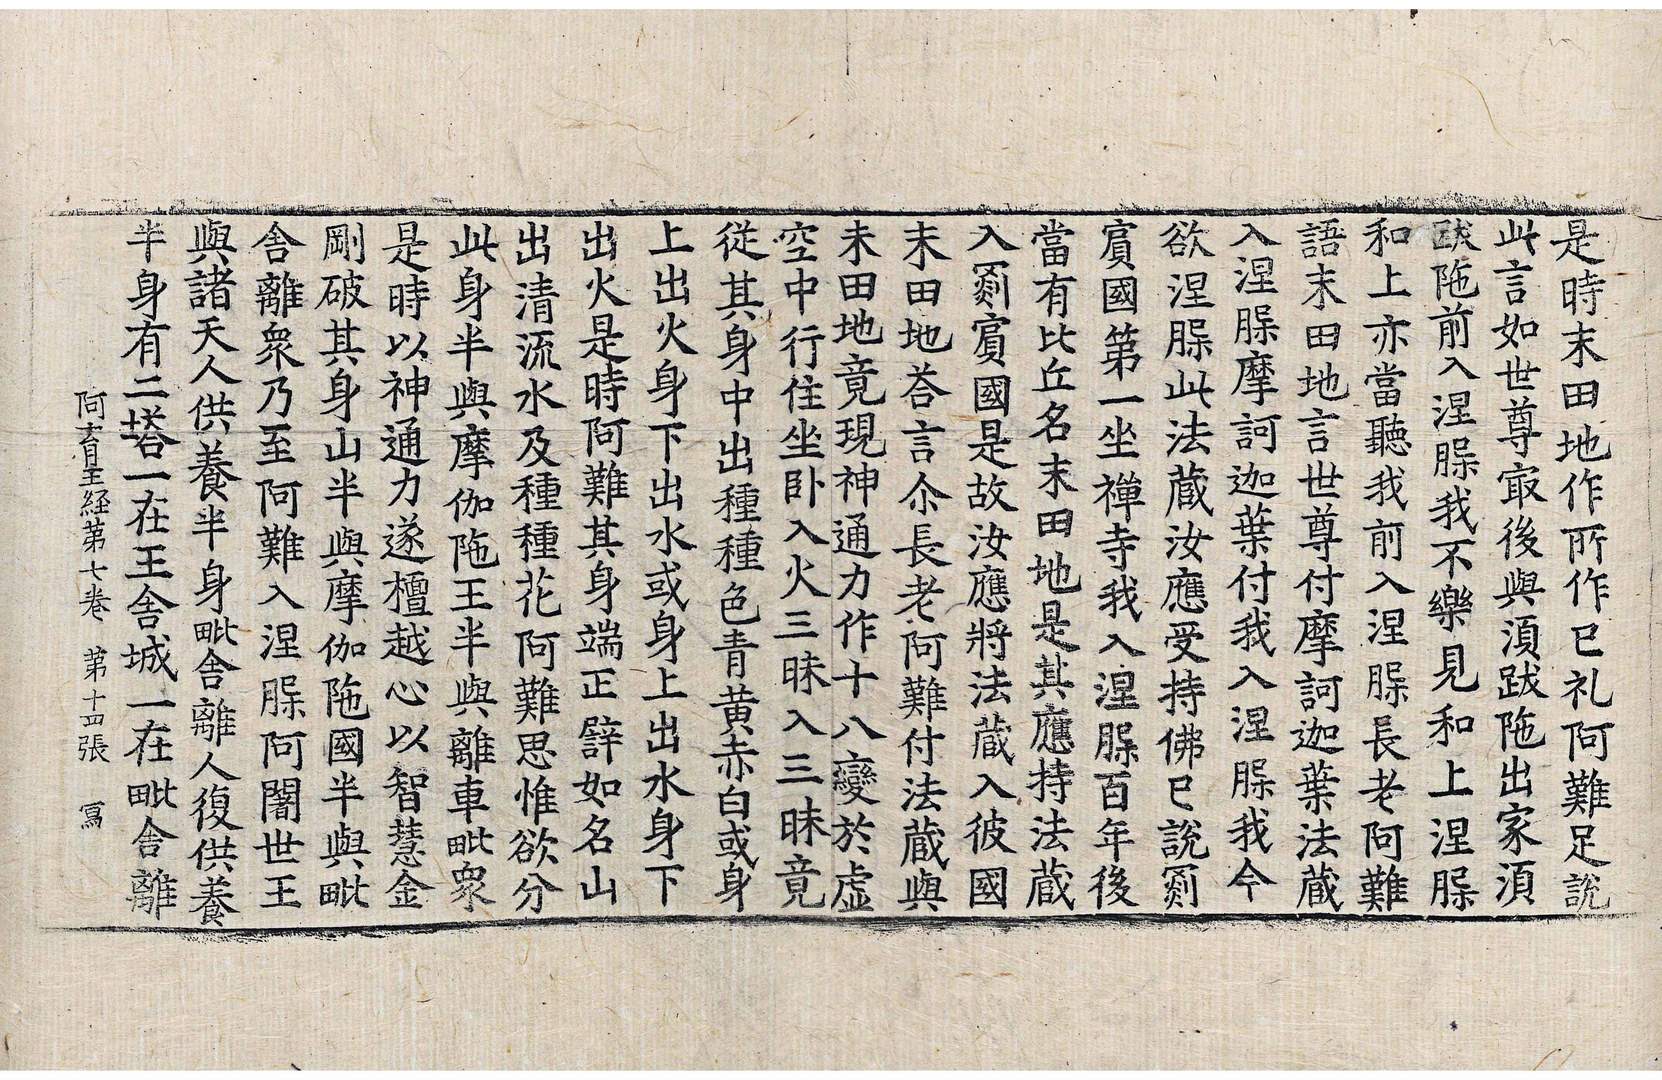 是時末田地作所作已礼阿難足說
此言如世尊㝡後與湏跋陁出家湏
跋陁前入涅𦜆我不樂見和上涅𦜆
和上亦當聽我前入涅𦜆長老阿難
語末田地言世尊付摩訶迦葉法蔵
入涅𦜆摩訶迦葉付我入涅𦜆我今
欲涅𦜆此法蔵汝應受持佛已說罽
賔國第一坐禪寺我入涅𦜆百年後
當有比丘名末田地是其應持法蔵
入罽賔國是故汝應將法蔵入彼國
末田地荅言尒長老阿難付法蔵與
末田地竟現神通力作十八變於虛
空中行住坐卧入火三昧入三昧竟
從其身中出種種色青黄赤白或身
上出火身下出水或身上出水身下
出火是時阿難其身端正譬如名山
出清流水及種種花阿難思惟欲分
此身半與摩伽陁王半與離車毗衆
是時以神通力遂檀越心以智慧金
剛破其身山半與摩伽陁國半與毗
舍離衆乃至阿難入涅𦜆阿闍世王
與諸天人供養半身毗舍離人復供養
半身有二塔一在王舍城一在毗舍離
阿育王経第七卷　第十四張　寫